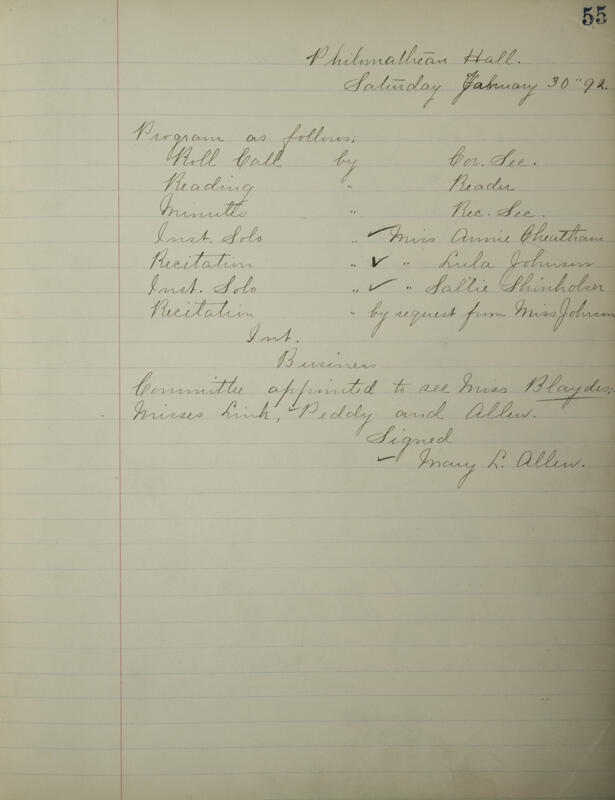 55
Philomathean Hall.
Saturday January 30" 92.
Program as follows;
Roll Call by Cor. Sec.
Reading " Reader
Minutes " Rec. Sec.
Inst. Solo " ✓ Miss Annie Cheatham
Recitation " ✓ " Lula Johnson
Inst. Solo " ✓ " Sallie Shinholser
Recitation " by request from Miss Johnson
Int.
Business
Committee appointed to see Miss Blaydes;
Misses Link, Peddy and Allen.
Signed
✓ Mary L. Allen.